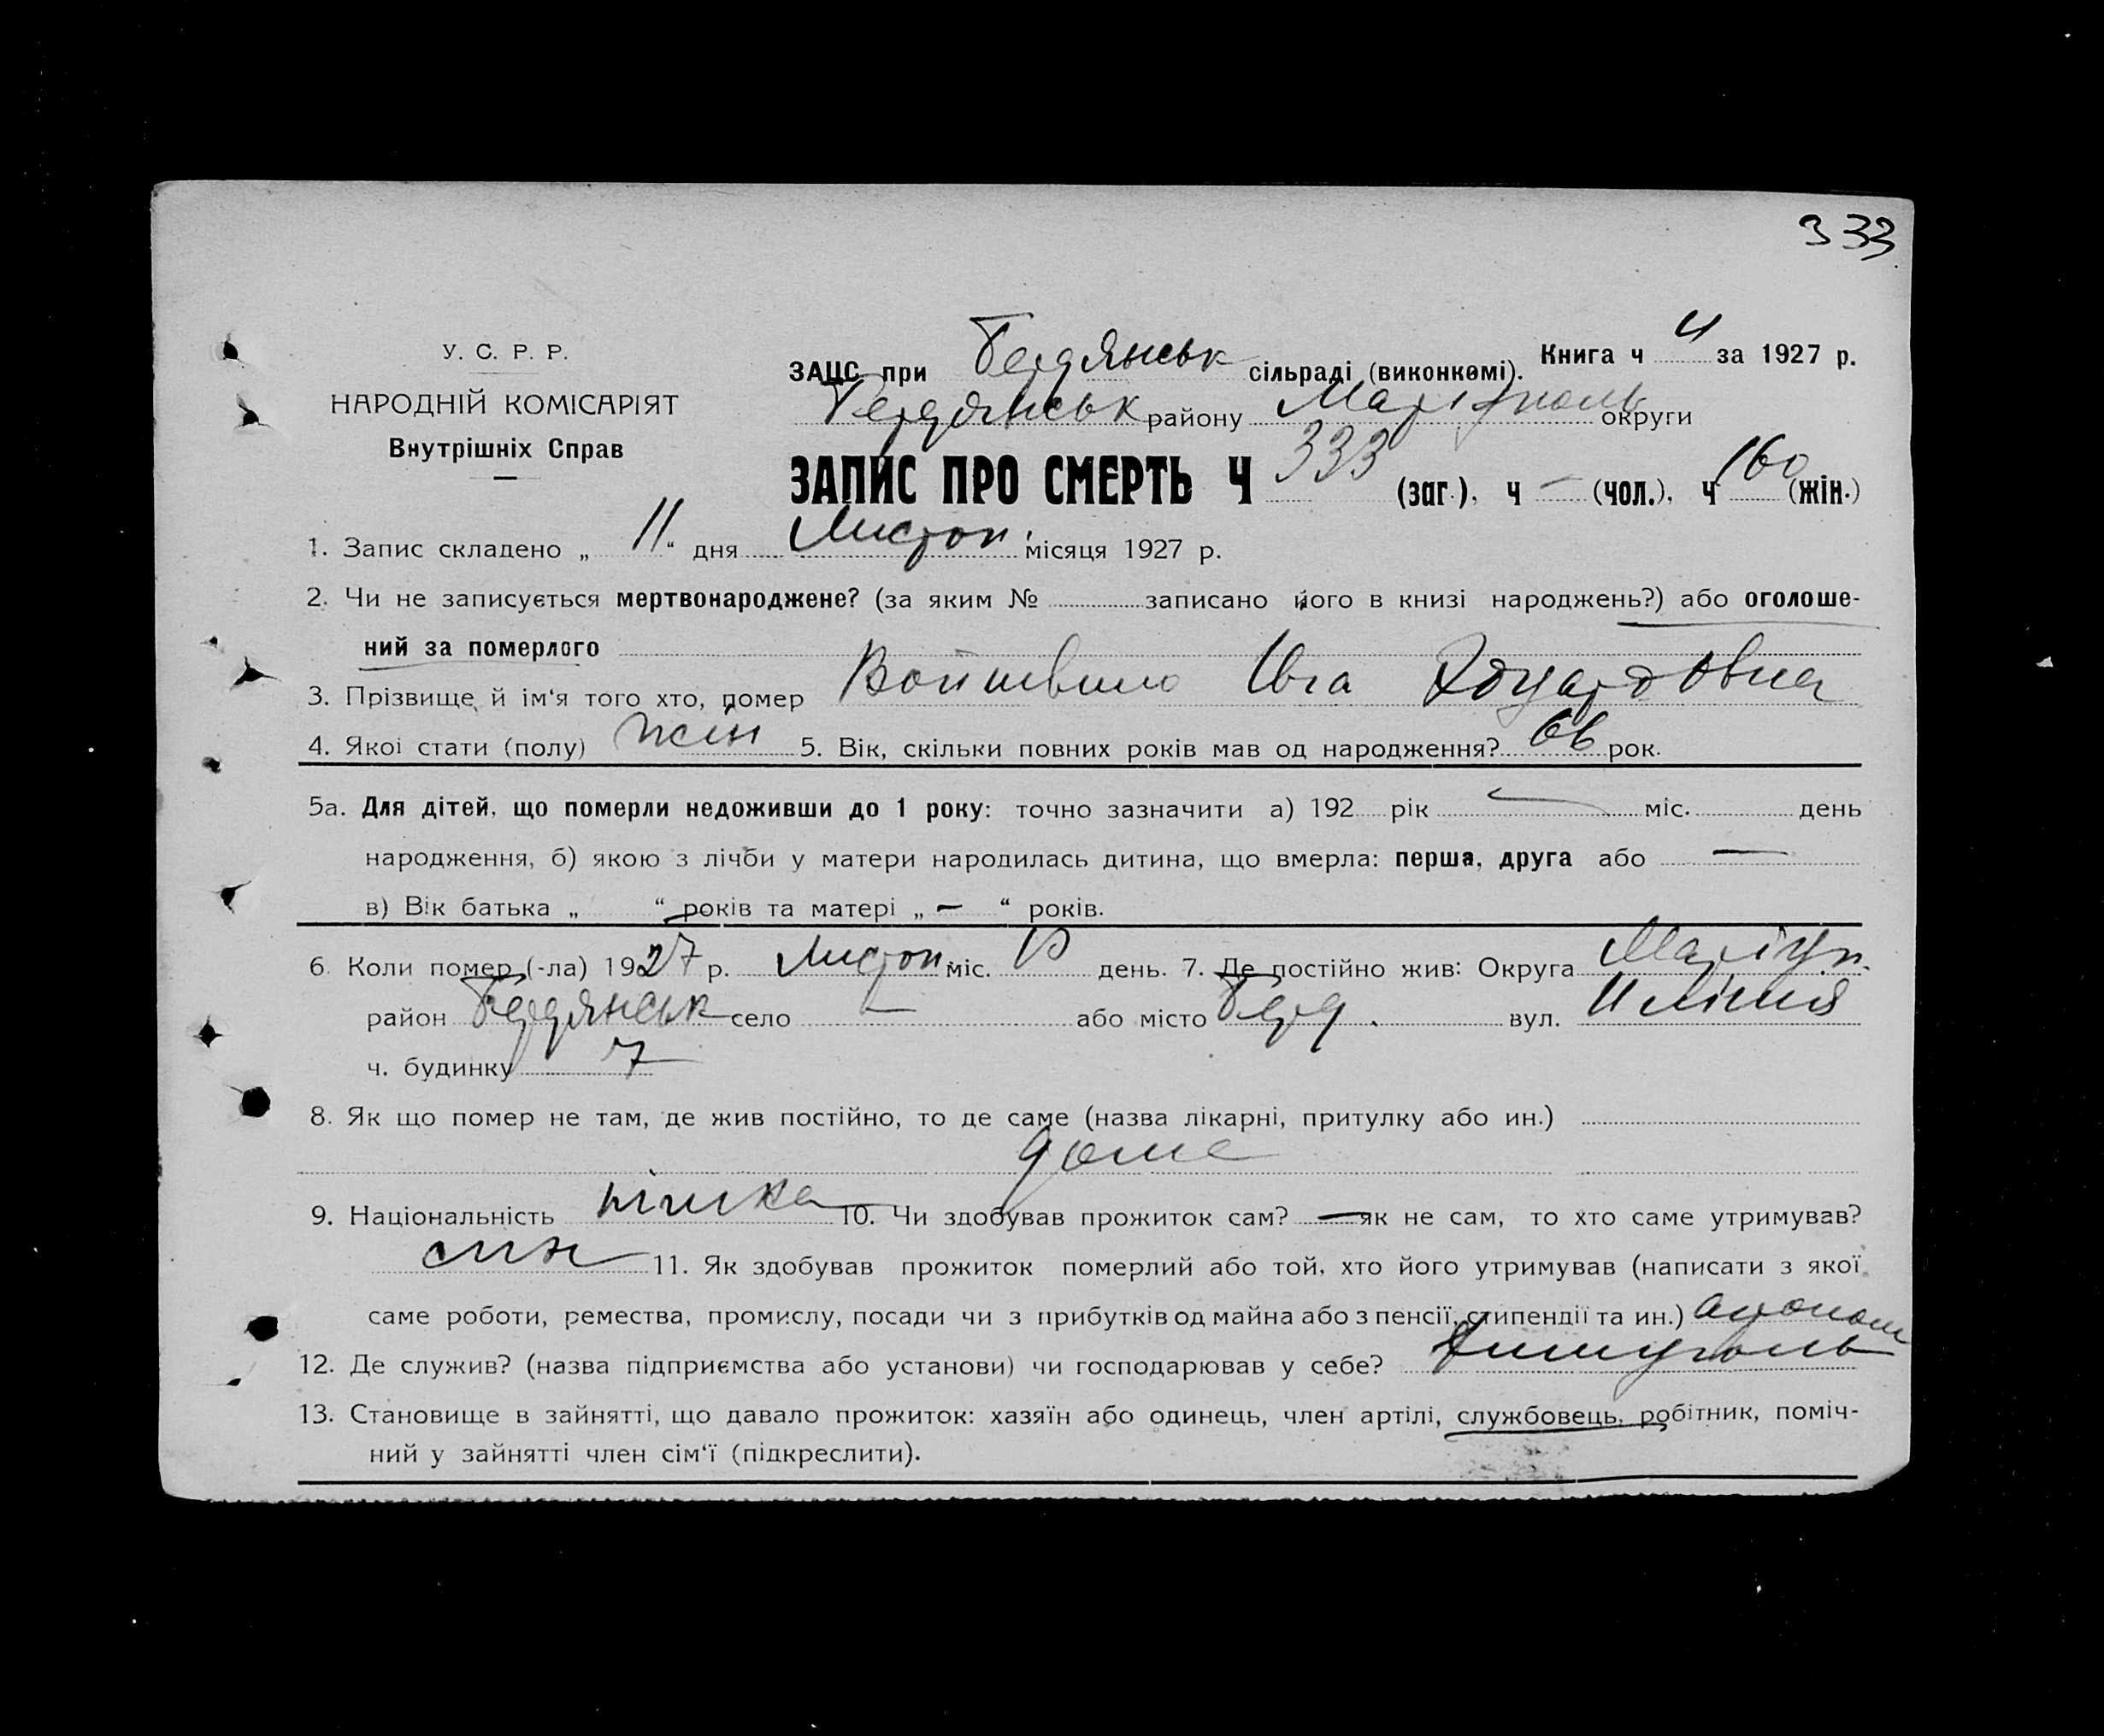 333
У. С. Р. Р.
НАРОДНІЙ КОМІСАРІЯТ
Внутрішніх Справ
ЗАЦС при Бердянськ сільраді (виконкомі). Книга ч 4 за 1927 р.
Бердянськ району Маріуполь округи
ЗАПИС ПРО СМЕРТЬ Ч 333 (заг.), ч — (чол.), ч 160 (жін.)
1. Запис складено „ 11 “ дня Листоп. місяця 1927 р.
2. Чи не записується мертвонароджене? (за яким № записано його в книзі народжень?) або оголоше-
ний за померлого
3. Прізвище й ім‘я того хто, помер Едуардовна
4. Якої стати (полу) жін 5. Вік, скільки повних років мав од народження? 66 рок.
5а. Для дітей, що померли недоживши до 1 року: точно зазначити а) 192 рік — міс. день
народження, б) якою з лічби у матери народилась дитина, що вмерла: перша, друга або —
в) Вік батька „ “ років та матері „ — “ років.
6. Коли помер (-ла) 1927 р. Листоп. міс. 10 день. 7. Де постійно жив: Округа Маріуп.
район Бердянськ село — або місто Берд. вул. лінія
ч. будинку 7
8. Як що помер не там, де жив постійно, то де саме (назва лікарні, притулку або ин.)
доме
9. Національність німка 10. Чи здобував прожиток сам? — як не сам, то хто саме утримував?
син 11. Як здобував прожиток померлий або той, хто його утримував (написати з якої
саме роботи, ремества, промислу, посади чи з прибутків од майна або з пенсії, стипендії та ин.) агроном
12. Де служив? (назва підприємства або установи) чи господарював у себе?
13. Становище в зайнятті, що давало прожиток: хазяїн або одинець, член артілі, службовець, робітник, поміч-
ний у зайнятті член сім‘ї (підкреслити).